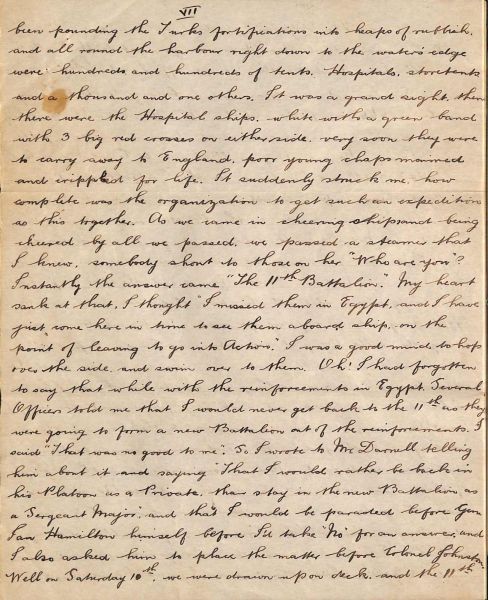 VII
been pounding the Turks fortifications into heaps of rubbish.
and all round the harbour right down to the water's edge
were hundreds and hundreds of tents. Hospitals, storetents
and a thousand and one others. It was a grand sight, then
there were the Hospital ships, white with a green band
with 3 big red crosses on either side, very soon they were
to carry away to England, poor young chaps maimed
and crippled for life. It suddenly struck me, how
complete was the organization to get such an expedition
as this together. As we came in cheering ships and being
cheered by all we passed, we passed a steamer that
I knew, somebody shout to those on her "Who are you"?
Instantly the answer came "The 11th Battalion." My heart
sank at that, I thought "I missed them in Egypt, and I have
just come here in time to see them aboard ship, on the
point of leaving to go into Action." I was a good mind to hop
over the side and swim over to them. Oh! I had forgotten
to say that while with the reinforcements in Egypt Several
Officers told me that I would never get back to the 11th as they
were going to form a new Battalion out of the reinforcements. I
said "That was no good to me". So I wrote to Mr Darnell telling
him about it and saying "That I would rather be back in
his Platoon as a Private, than stay in the new Battalion as
a Sergeant Major; and that I would be paraded before Gen
Ian Hamilton himself before I'd take 'No' for an answer, and
I also asked him to place the matter before Colonel Johnston
Well on Saturday 10th, we were drawn upon deck, and the 11th